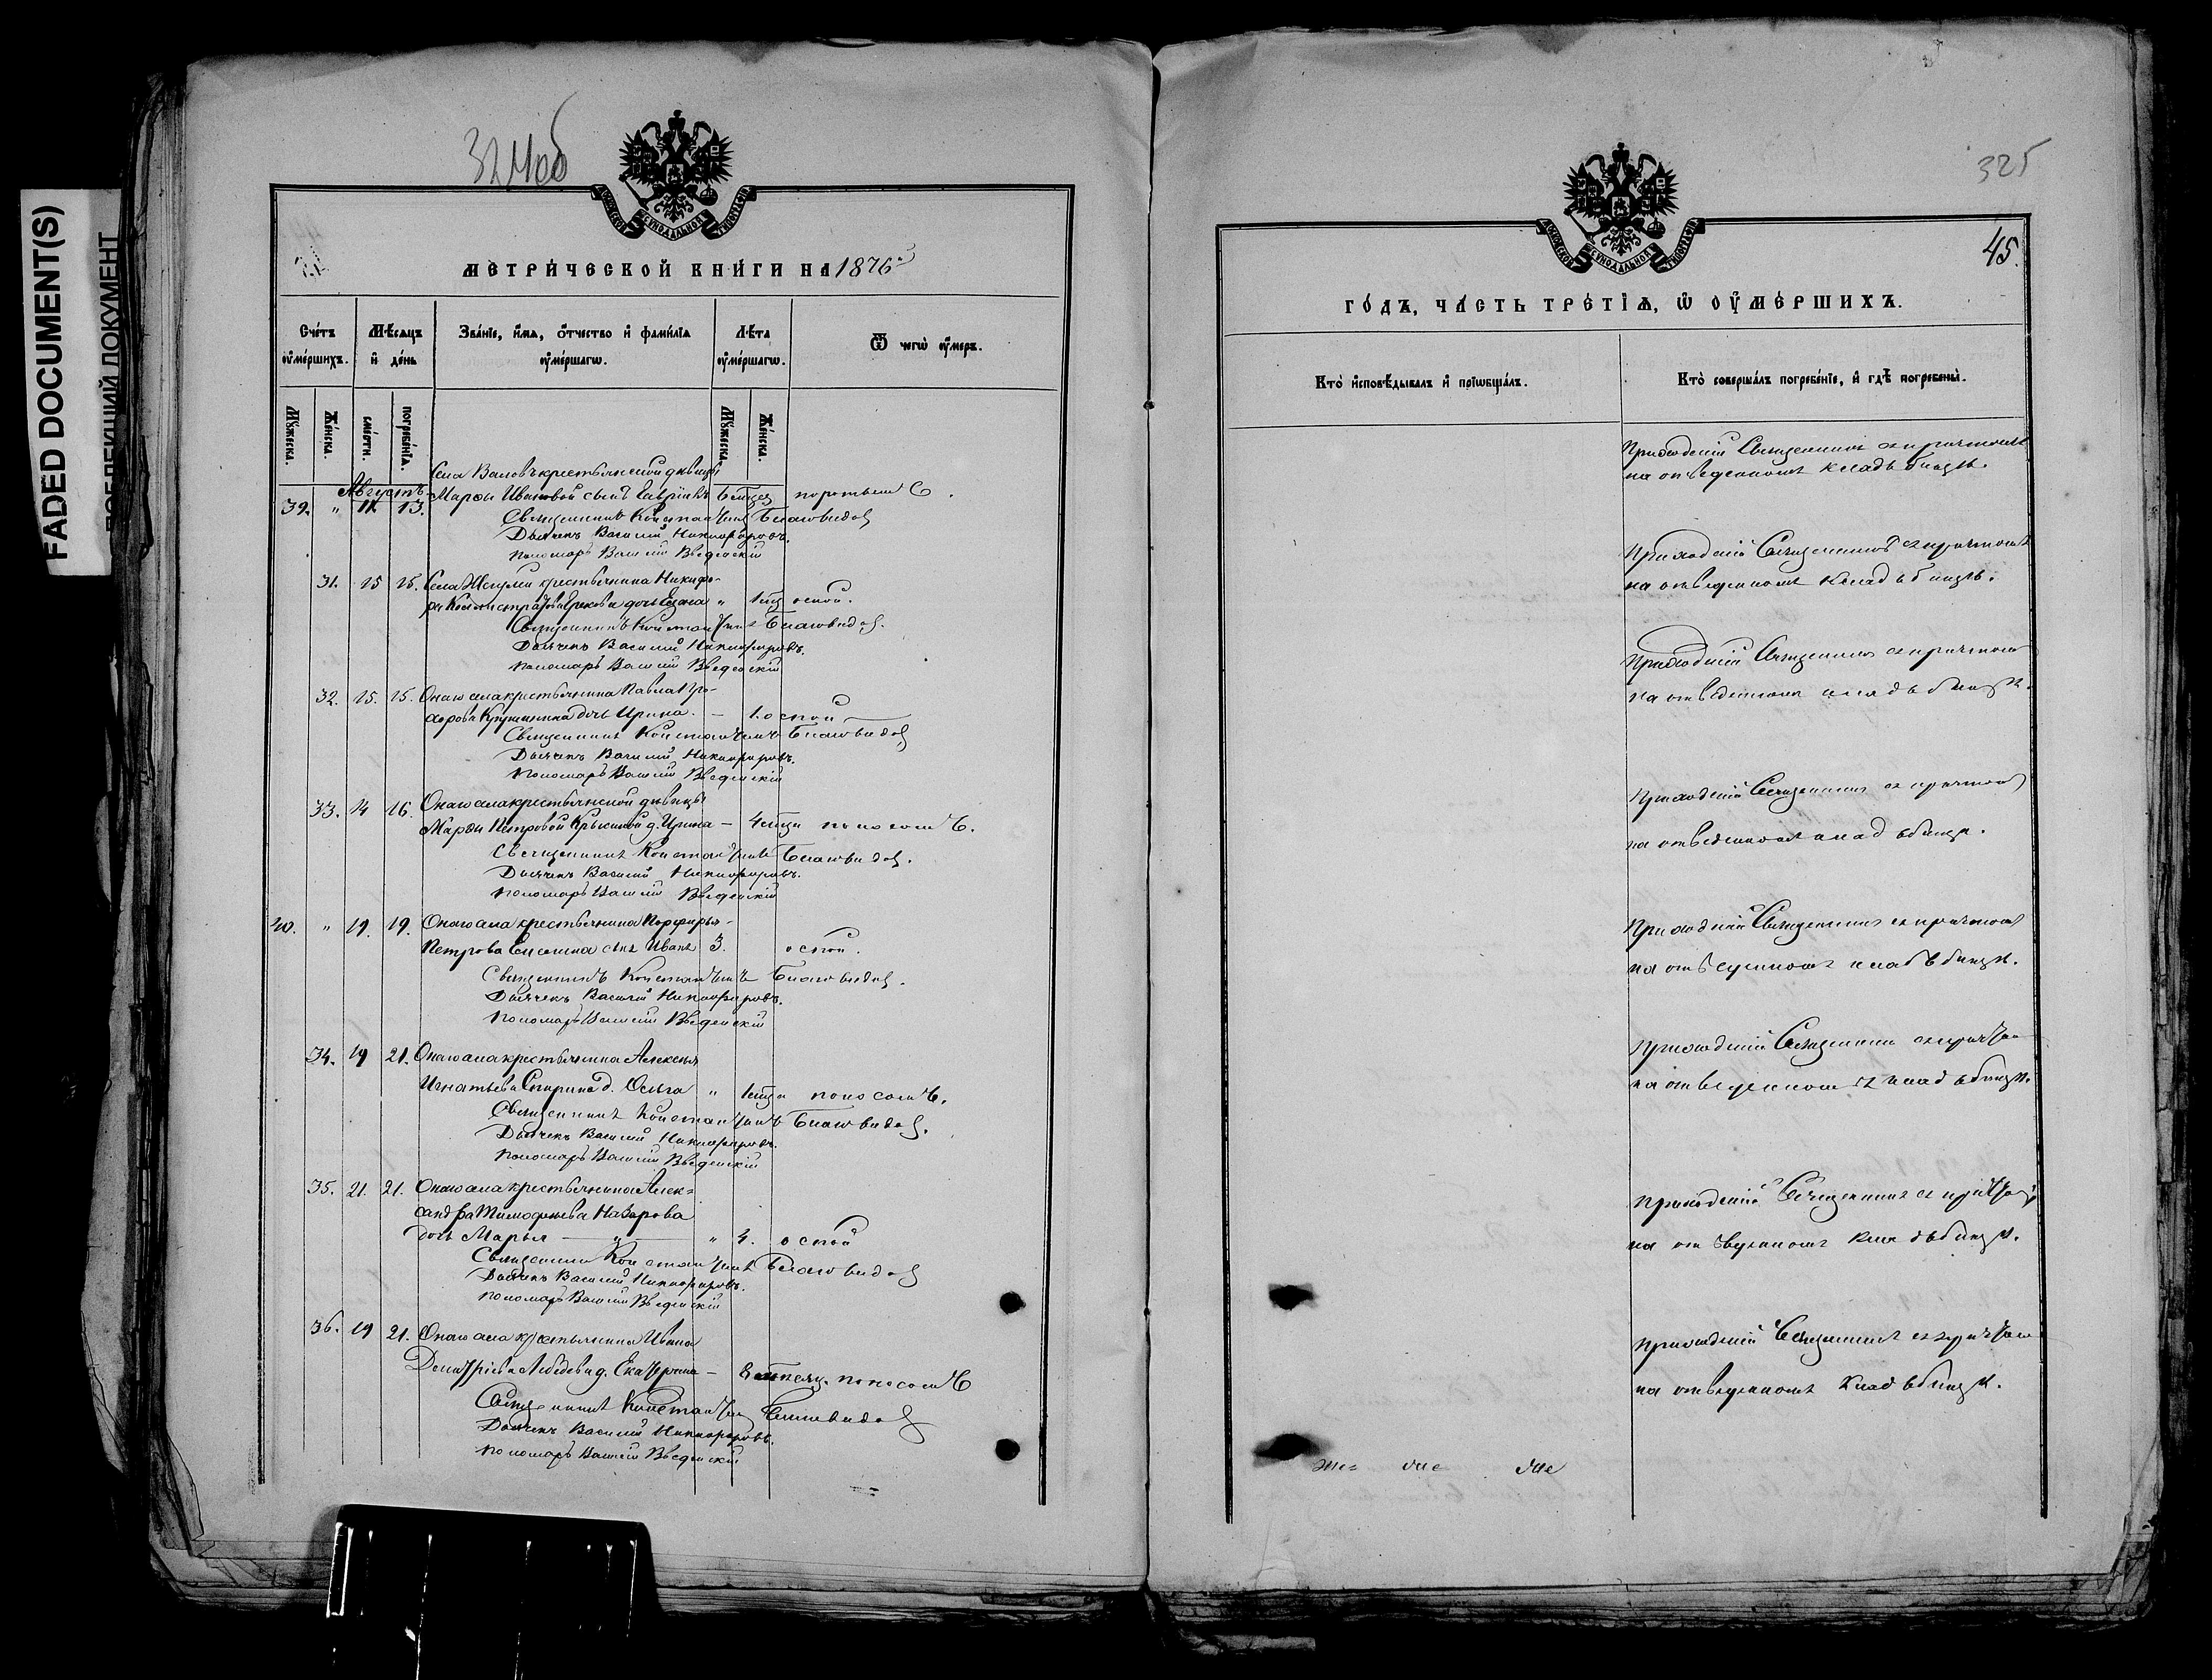 FADED DOCUMENT(S)
324об
МЕТРИ́ЧЕСКОЙ КНИ́ГИ НА 1876й
Сче́тъ оу҆ме́ршихъ.
Мѣ́сяцъ и҆ де́нь
Зва́нїе, и҆́мя, ѻ҆́тчество и҆ фами́лїа оу҆ме́ршагѡ.
Лѣ́та оу҆ме́ршагѡ.
Ѿ чегѡ̀ оу҆́меръ.
Мꙋ́жеска.
Же́нска.
сме́рти.
погребе́нїѧ.
Мꙋ́жеска.
Же́нска.
Августъ
Села Валовъ крестьянской дѣвицы
39. " 11. 13. Марѳы Ивановой сынъ Гавріилъ
Священникъ Константинъ Благовидовъ
Дьячекъ Василій Никифоровъ.
Пономарь Василій Введенскій
31. 15 15. Села Жегули крестьянина Никифо-
" оспой.
Священникъ Константинъ Благовидовъ.
Дьячекъ Василій Никифоровъ.
Пономарь Василій Введенскій
32. 15. 15. Онаго села крестьянина Павла Про-
хорова дочь Ирина. — 1. оспой
Священникъ Константинъ Благовидовъ
Дьячекъ Василій Никифоровъ.
Пономарь Василій Введенскій
33. 14 16. Онаго села крестьянской дѣвицы
Марѳы Петровой д. Ирина — поносомъ.
Священникъ Константинъ Благовидовъ.
Дьячекъ Василій Никифоровъ.
Пономарь Василій Введенскій
40. " 19. 19. Онаго села крестьянина Порфирья
Петрова сынъ Иванъ 3. оспой.
Священникъ Константинъ Благовидовъ.
Дьячекъ Василій Никифоровъ.
Пономарь Василій Введенскій
34. 19 21. Онаго села крестьянина Алексѣя
Игнатьева Спирина д. Ольга " поносомъ.
Священникъ Константинъ Благовидовъ.
Дьячекъ Василій Никифоровъ.
Пономарь Василій Введенскій
35. 21. 21. Онаго села крестьянина Алек=
сандра Тимофеева Назарова
дочь Марья — " — " 4. оспой
Священникъ Константинъ Благовидовъ
Дьячекъ Василій Никифоровъ.
Пономарь Василій Введенскій
36. 19 21. Онаго села крестьянина Ивана
Димитріева Лебедева д. Екатерина — поносомъ
Священникъ Константинъ Благовидовъ
Дьячекъ Василій Никифоровъ.
Пономарь Василій Введенскій
325
45.
ГО́ДЪ, ЧА́СТЬ ТРЕ́ТЇѦ, Ѡ҆ ОУ҆МЕ́РШИХЪ.
Кто̀ и҆сповѣ́дывалъ и҆ прїѡбща́лъ.
Кто̀ соверша́лъ погребе́нїе, и҆ гдѣ̀ погребены̀.
Приходскій Священникъ съ причтомъ
на отведенномъ кладбищѣ.
Приходскій Священникъ съ причтомъ
на отведенномъ кладбищѣ.
Приходскій Священникъ съ причтомъ
на отведенномъ кладбищѣ.
Приходскій Священникъ съ причтомъ
на отведенномъ кладбищѣ.
Приходскій Священникъ съ причтомъ
на отведенномъ кладбищѣ.
Приходскій Священникъ съ причтомъ
на отведенномъ кладбищѣ.
Приходскій Священникъ съ причтомъ
на отведенномъ кладбищѣ.
Приходскій Священникъ съ причтомъ
на отведенномъ кладбищѣ.